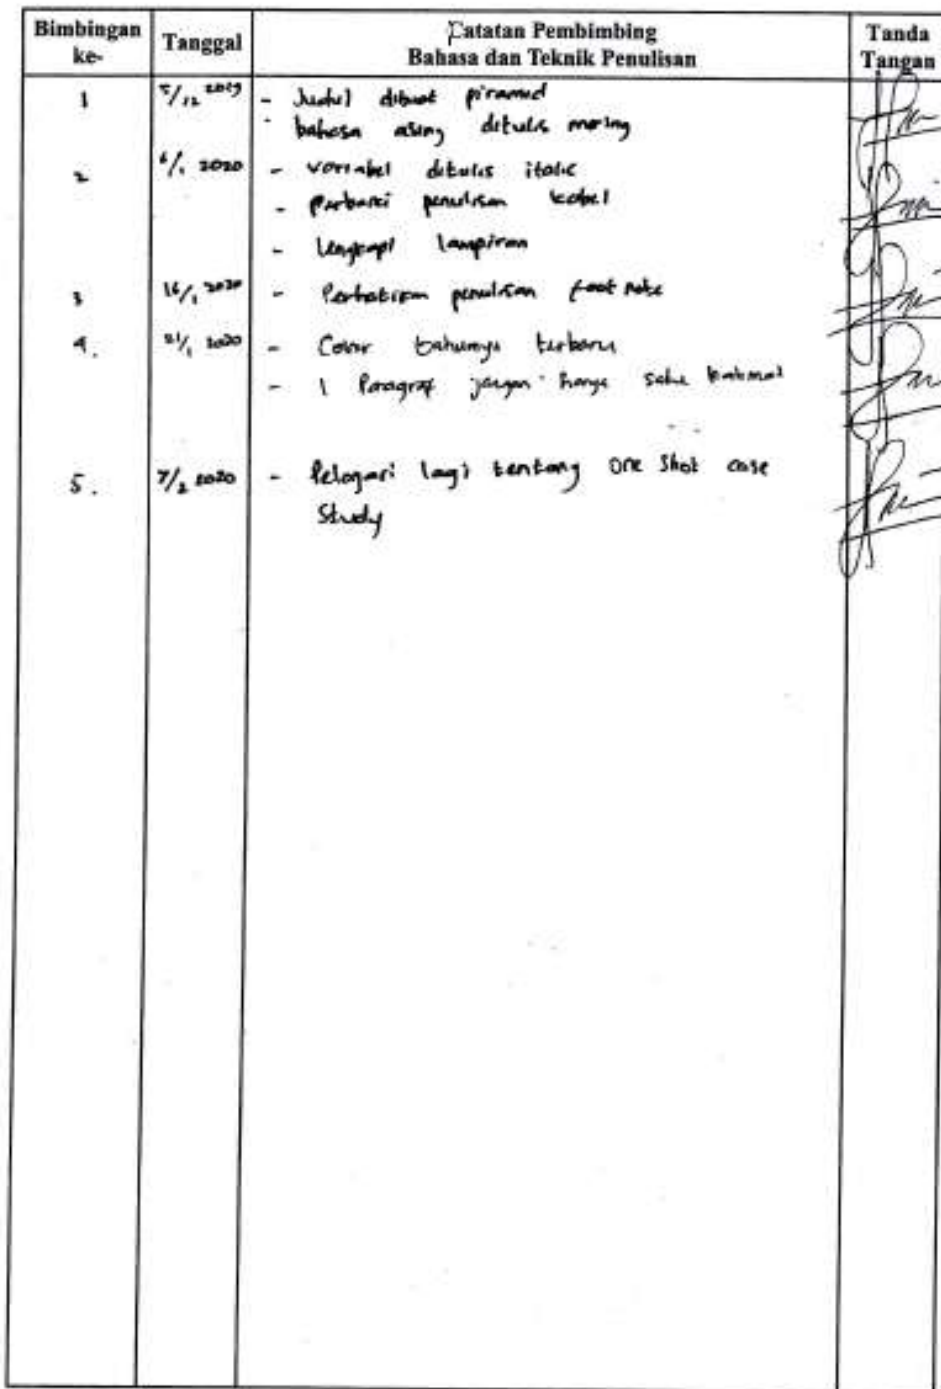 Bimbingan ke-
Tanggal
Catatan Pembimbing
Bahasa dan Teknik Penulisan
Tanda Tangan
1 5/12 2019 - Judul dibuat piramid
- bahasa asing ditulis mering
2 6/1 2020 - variabel ditulis italic
- Perbaiki penulisan tabel
- lengkapi lampiran
3 16/1 2020 - Perhatikan penulisan foot note
4. 21/1 2020 - Cover tahunnya terbaru
- 1 Paragraf jangan hanya satu kalimat
5. 7/2 2020 - Pelajari lagi tentang One Shot case
Study